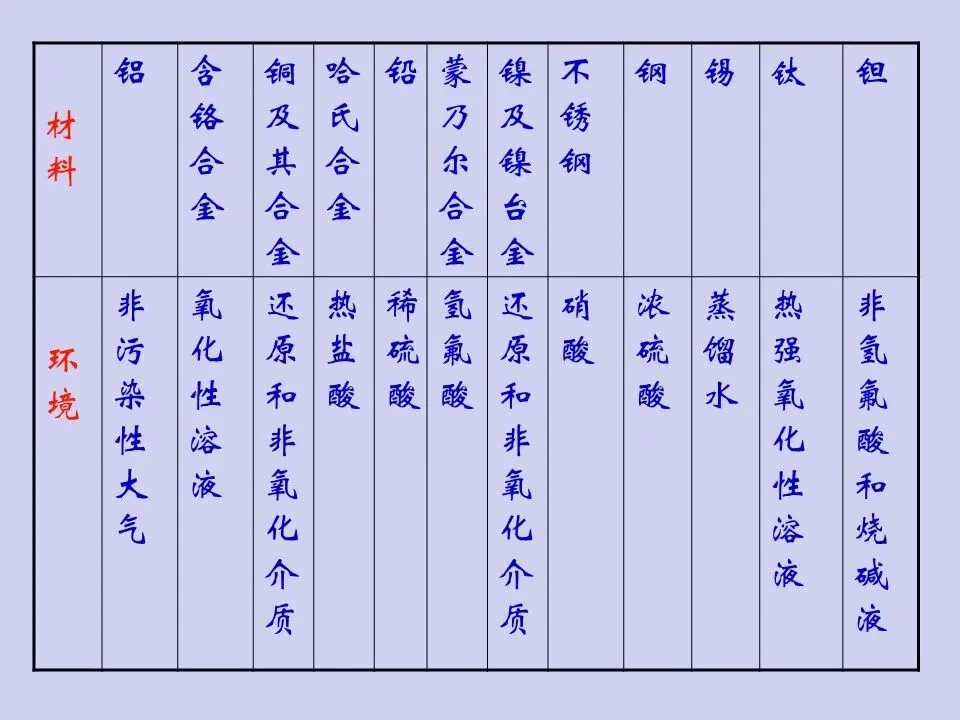 材料
铝
含铬合金
铜及其合金
哈氏合金
铅
蒙乃尔合金
镍及镍台金
不锈钢
钢
锡
钛
钽
环境
非污染性大气
氧化性溶液
还原和非氧化介质
热盐酸
稀硫酸
氢氟酸
还原和非氧化介质
硝酸
浓硫酸
蒸馏水
热强氧化性溶液
非氢氟酸和烧碱液